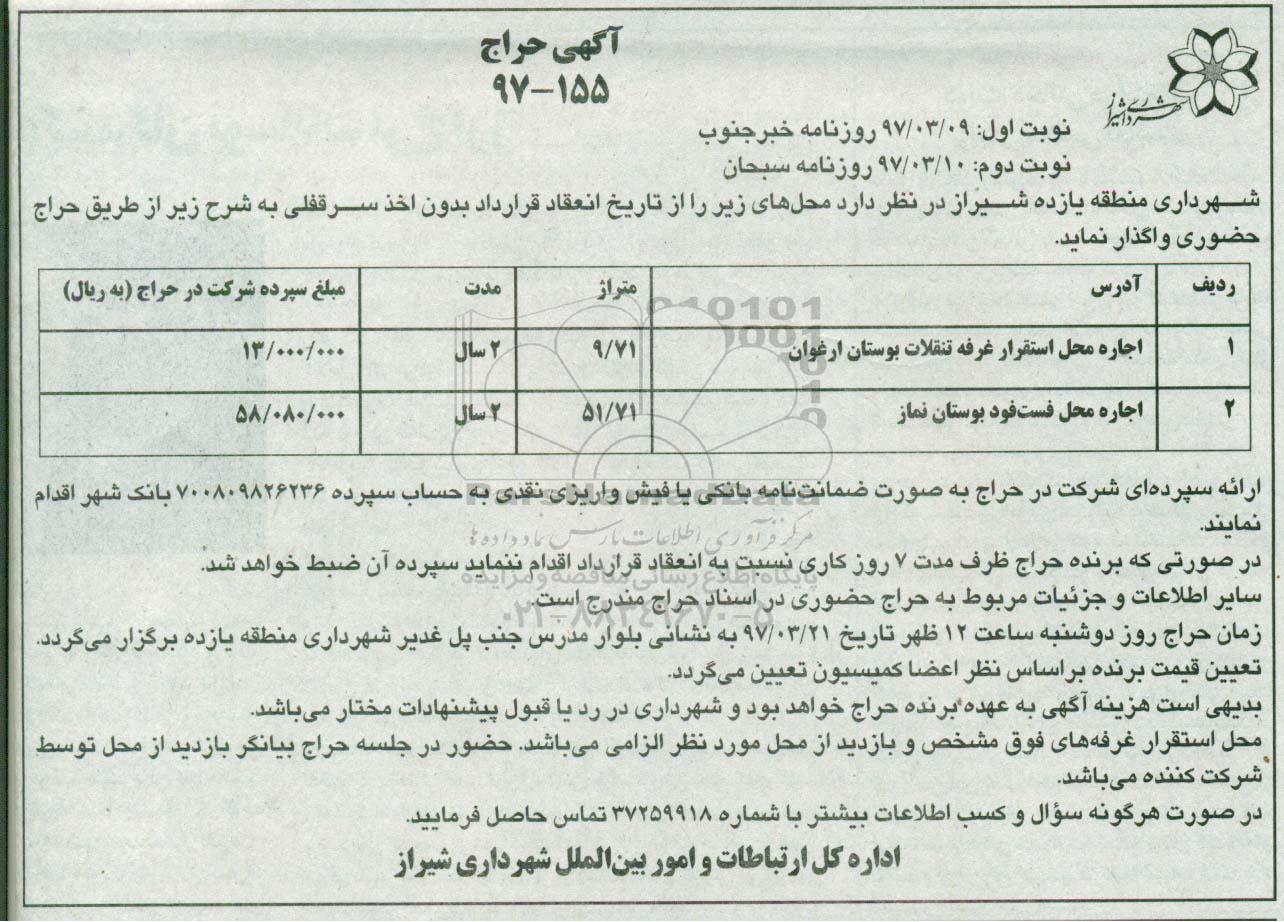 آگهی حراج
۹۷-۱۵۵
شهرداری شیراز
نوبت اول: ۹۷/۰۳/۰۹ روزنامه خبرجنوب
نوبت دوم: ۹۷/۰۳/۱۰ روزنامه سبحان
شهرداری منطقه یازده شیراز در نظر دارد محل‌های زیر را از تاریخ انعقاد قرارداد بدون اخذ سرقفلی به شرح زیر از طریق حراج
حضوری واگذار نماید.
ردیف آدرس متراژ مدت مبلغ سپرده شرکت در حراج (به ریال)
۱ اجاره محل استقرار غرفه تنقلات بوستان ارغوان ۹/۷۱ ۲ سال ۱۳/۰۰۰/۰۰۰
۲ اجاره محل فست‌فود بوستان نماز ۵۱/۷۱ ۲ سال ۵۸/۰۸۰/۰۰۰
ارائه سپرده‌ای شرکت در حراج به صورت ضمانت‌نامه بانکی یا فیش واریزی نقدی به حساب سپرده ۷۰۰۸۰۹۸۲۶۲۳۶ بانک شهر اقدام
نمایند.
در صورتی که برنده حراج ظرف مدت ۷ روز کاری نسبت به انعقاد قرارداد اقدام ننماید سپرده آن ضبط خواهد شد.
سایر اطلاعات و جزئیات مربوط به حراج حضوری در اسناد حراج مندرج است.
زمان حراج روز دوشنبه ساعت ۱۲ ظهر تاریخ ۹۷/۰۳/۲۱ به نشانی بلوار مدرس جنب پل غدیر شهرداری منطقه یازده برگزار می‌گردد.
تعیین قیمت برنده براساس نظر اعضا کمیسیون تعیین می‌گردد.
بدیهی است هزینه آگهی به عهده برنده حراج خواهد بود و شهرداری در رد یا قبول پیشنهادات مختار می‌باشد.
محل استقرار غرفه‌های فوق مشخص و بازدید از محل مورد نظر الزامی می‌باشد. حضور در جلسه حراج بیانگر بازدید از محل توسط
شرکت کننده می‌باشد.
در صورت هرگونه سؤال و کسب اطلاعات بیشتر با شماره ۳۷۲۵۹۹۱۸ تماس حاصل فرمایید.
اداره کل ارتباطات و امور بین‌الملل شهرداری شیراز
پایگاه اطلاع رسانی مناقصه و مزایده
۰۲۱-۸۸۳۴۹۶۷۰-۵